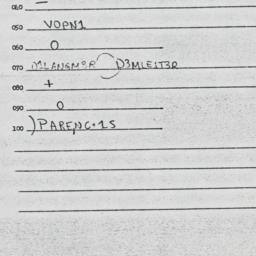 040 —
050 VOPN1
060 O
070
080 +
090 O
100 )PARENC.1S